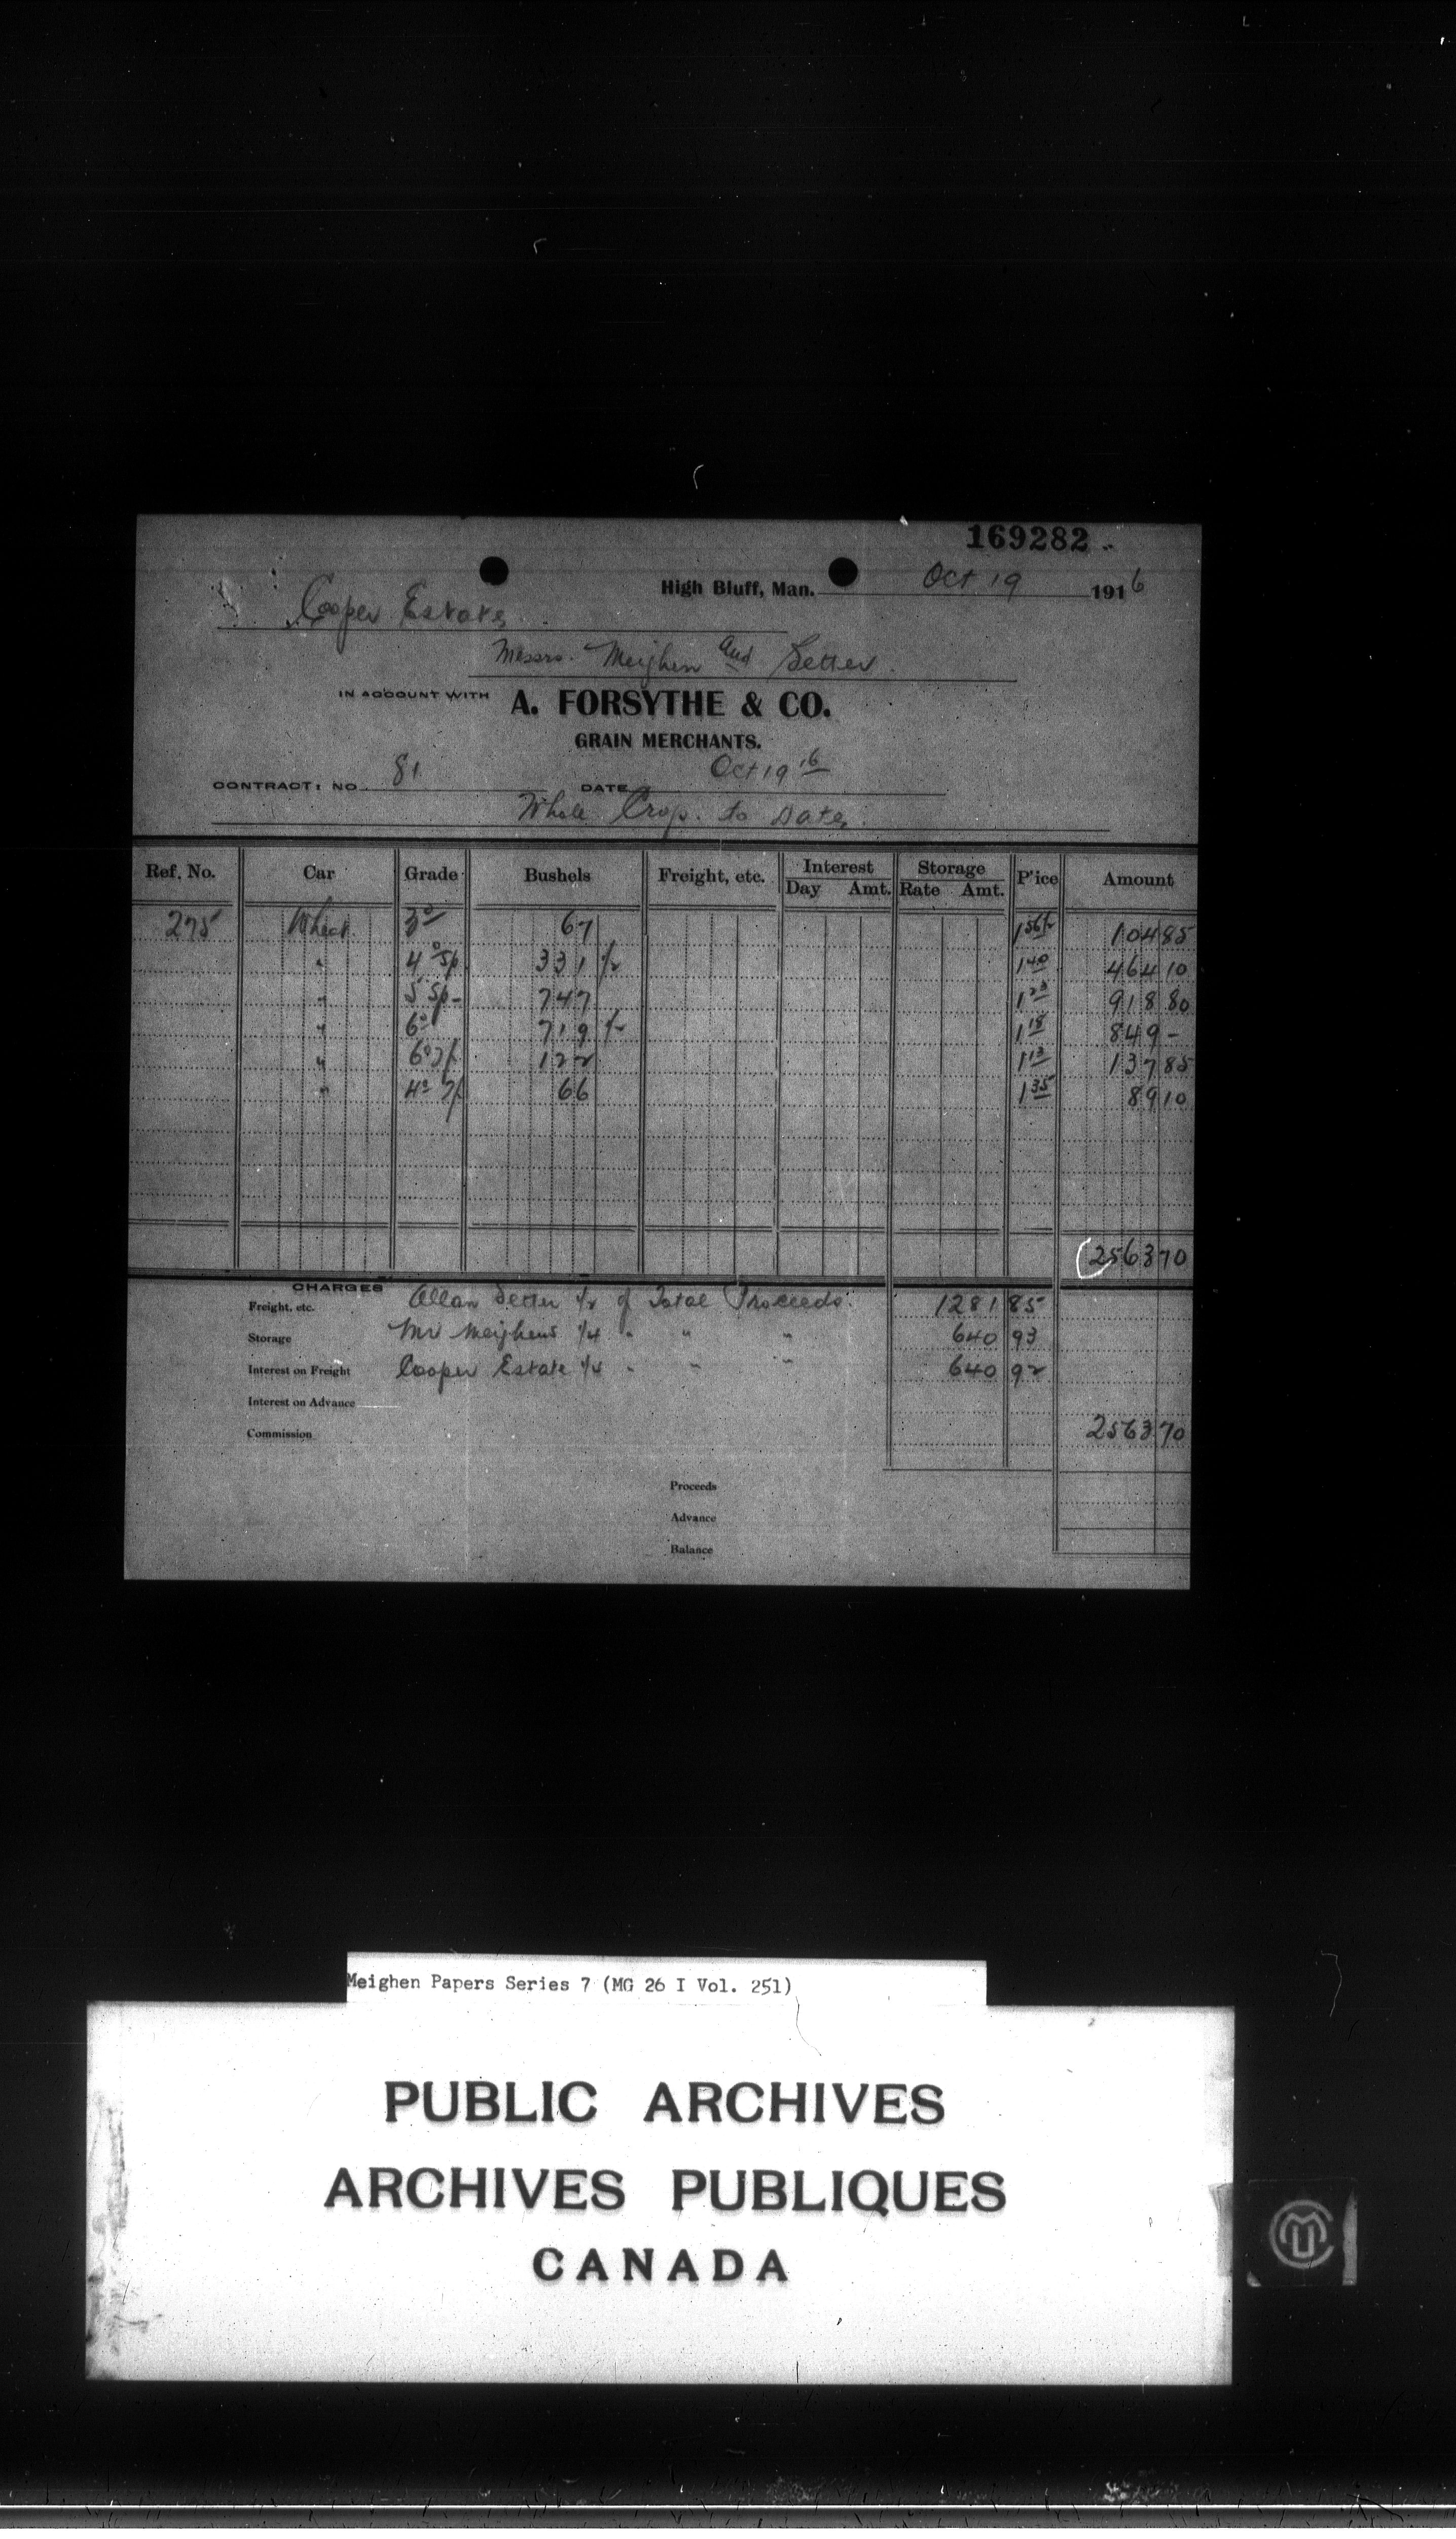 169282
High Bluff, Man. Oct 19 1916
Cooper Estate
Messrs. Meighen and Setter
IN ACCOUNT WITH A. FORSYTHE & CO.
GRAIN MERCHANTS.
CONTRACT: NO. 81 DATE Oct 19 16
Whole Crop. to Date
Ref. No. Car Grade Bushels Freight, etc. Interest Day Amt. Storage Rate Amt. P'ice Amount
275 Wheat 3º 67 1 56½ 104 85
" 4º Sp 331 ½ 1 40 464 10
" 5 Sp- 747 1 23 918 80
" 6º 719 ½ 1 18 849 -
" 6º 122 1 13 137 85
" 4º 66 1 35 89 10
2563 70
CHARGES
Freight, etc. Allan Setter ½ of Total Proceeds. 1281 85
Storage Mr Meighens ¼ " " " 640 93
Interest on Freight Cooper Estate ¼ " " " 640 92
Interest on Advance
Commission 2563 70
Proceeds
Advance
Balance
Meighen Papers Series 7 (MG 26 I Vol. 251)
PUBLIC ARCHIVES
ARCHIVES PUBLIQUES
CANADA